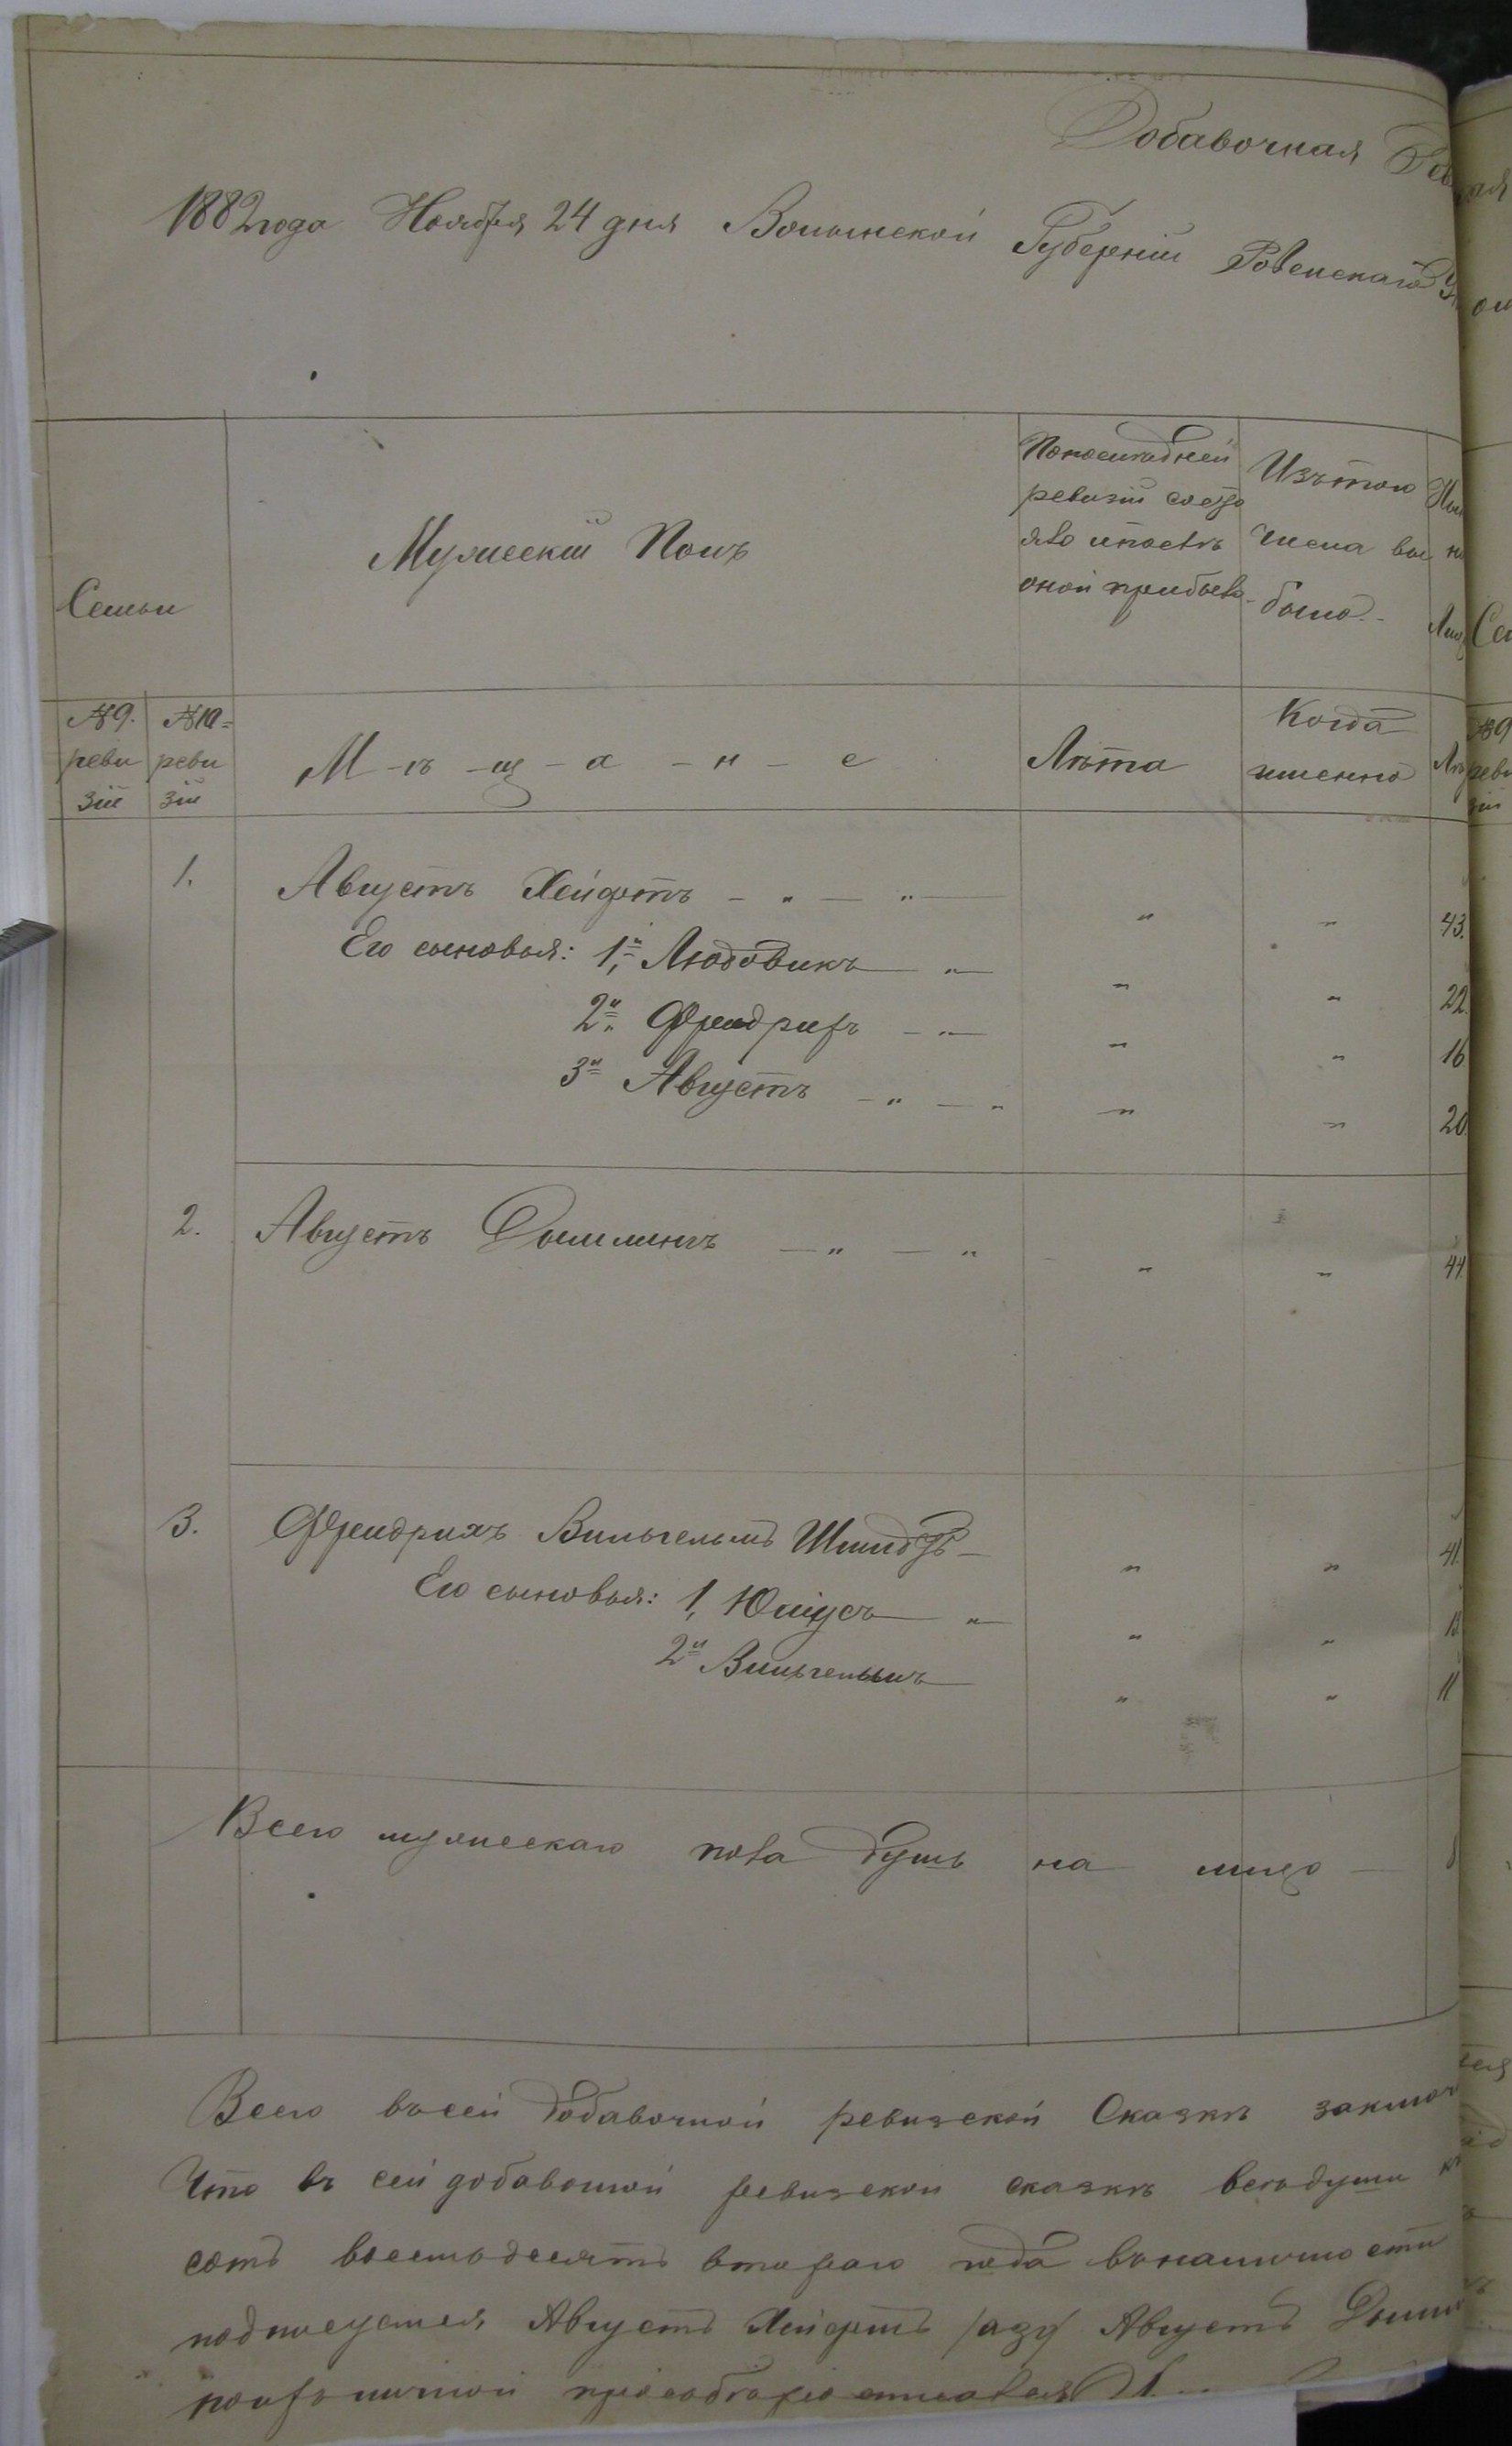 Добавочная Рев
1882 года Ноября 24 дня Волынской Губерніи Ровенскаго У
Семьи
Мужескій Полъ
Попоследней
ревизіи состо
яло ипослѣ
оной прибыло
Изътого
Числа вы
было
№ 9.
реви
зіи
№ 10
реви
зіи
М - ѣ - щ - а - н - е
Лѣта
Когда
именно
1. Августъ Хейфтъ - " - " " " 43.
Его сыновья: 1й Людовикъ " " " 22
2й Фридрихъ - " " " 16
3й Августъ - " - " " " 20
2. Августъ Дымлингъ - " - " " " 44
3. Фридрихъ Вильгельмъ Шмидтъ - " " 41
Его сыновья: 1, Юліусъ " " " 13
2й Вильгельмъ " " 11
Всего мужескаго пола душъ на лицо — 8
Всего въсей добавочной ревизской Сказкѣ заключ
Что въ сей добавочной ревизской сказкѣ всѣдуши
сотъ восемьдесятъ втораго года вналичности
Августъ Хейфтъ Августъ Дымл